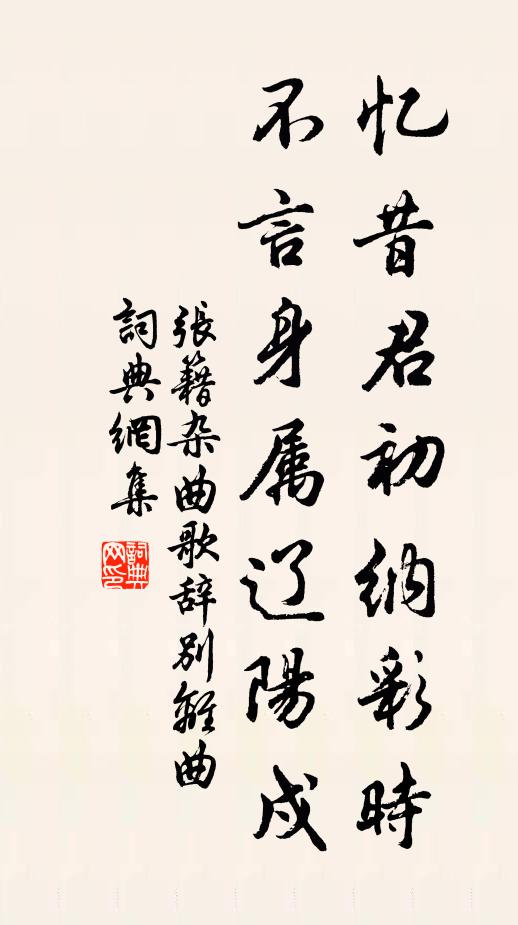 忆昔君初纳彩時
不言身属辽陽戍
張籍杂曲歌辞別離曲
詞典網集
詞典网印